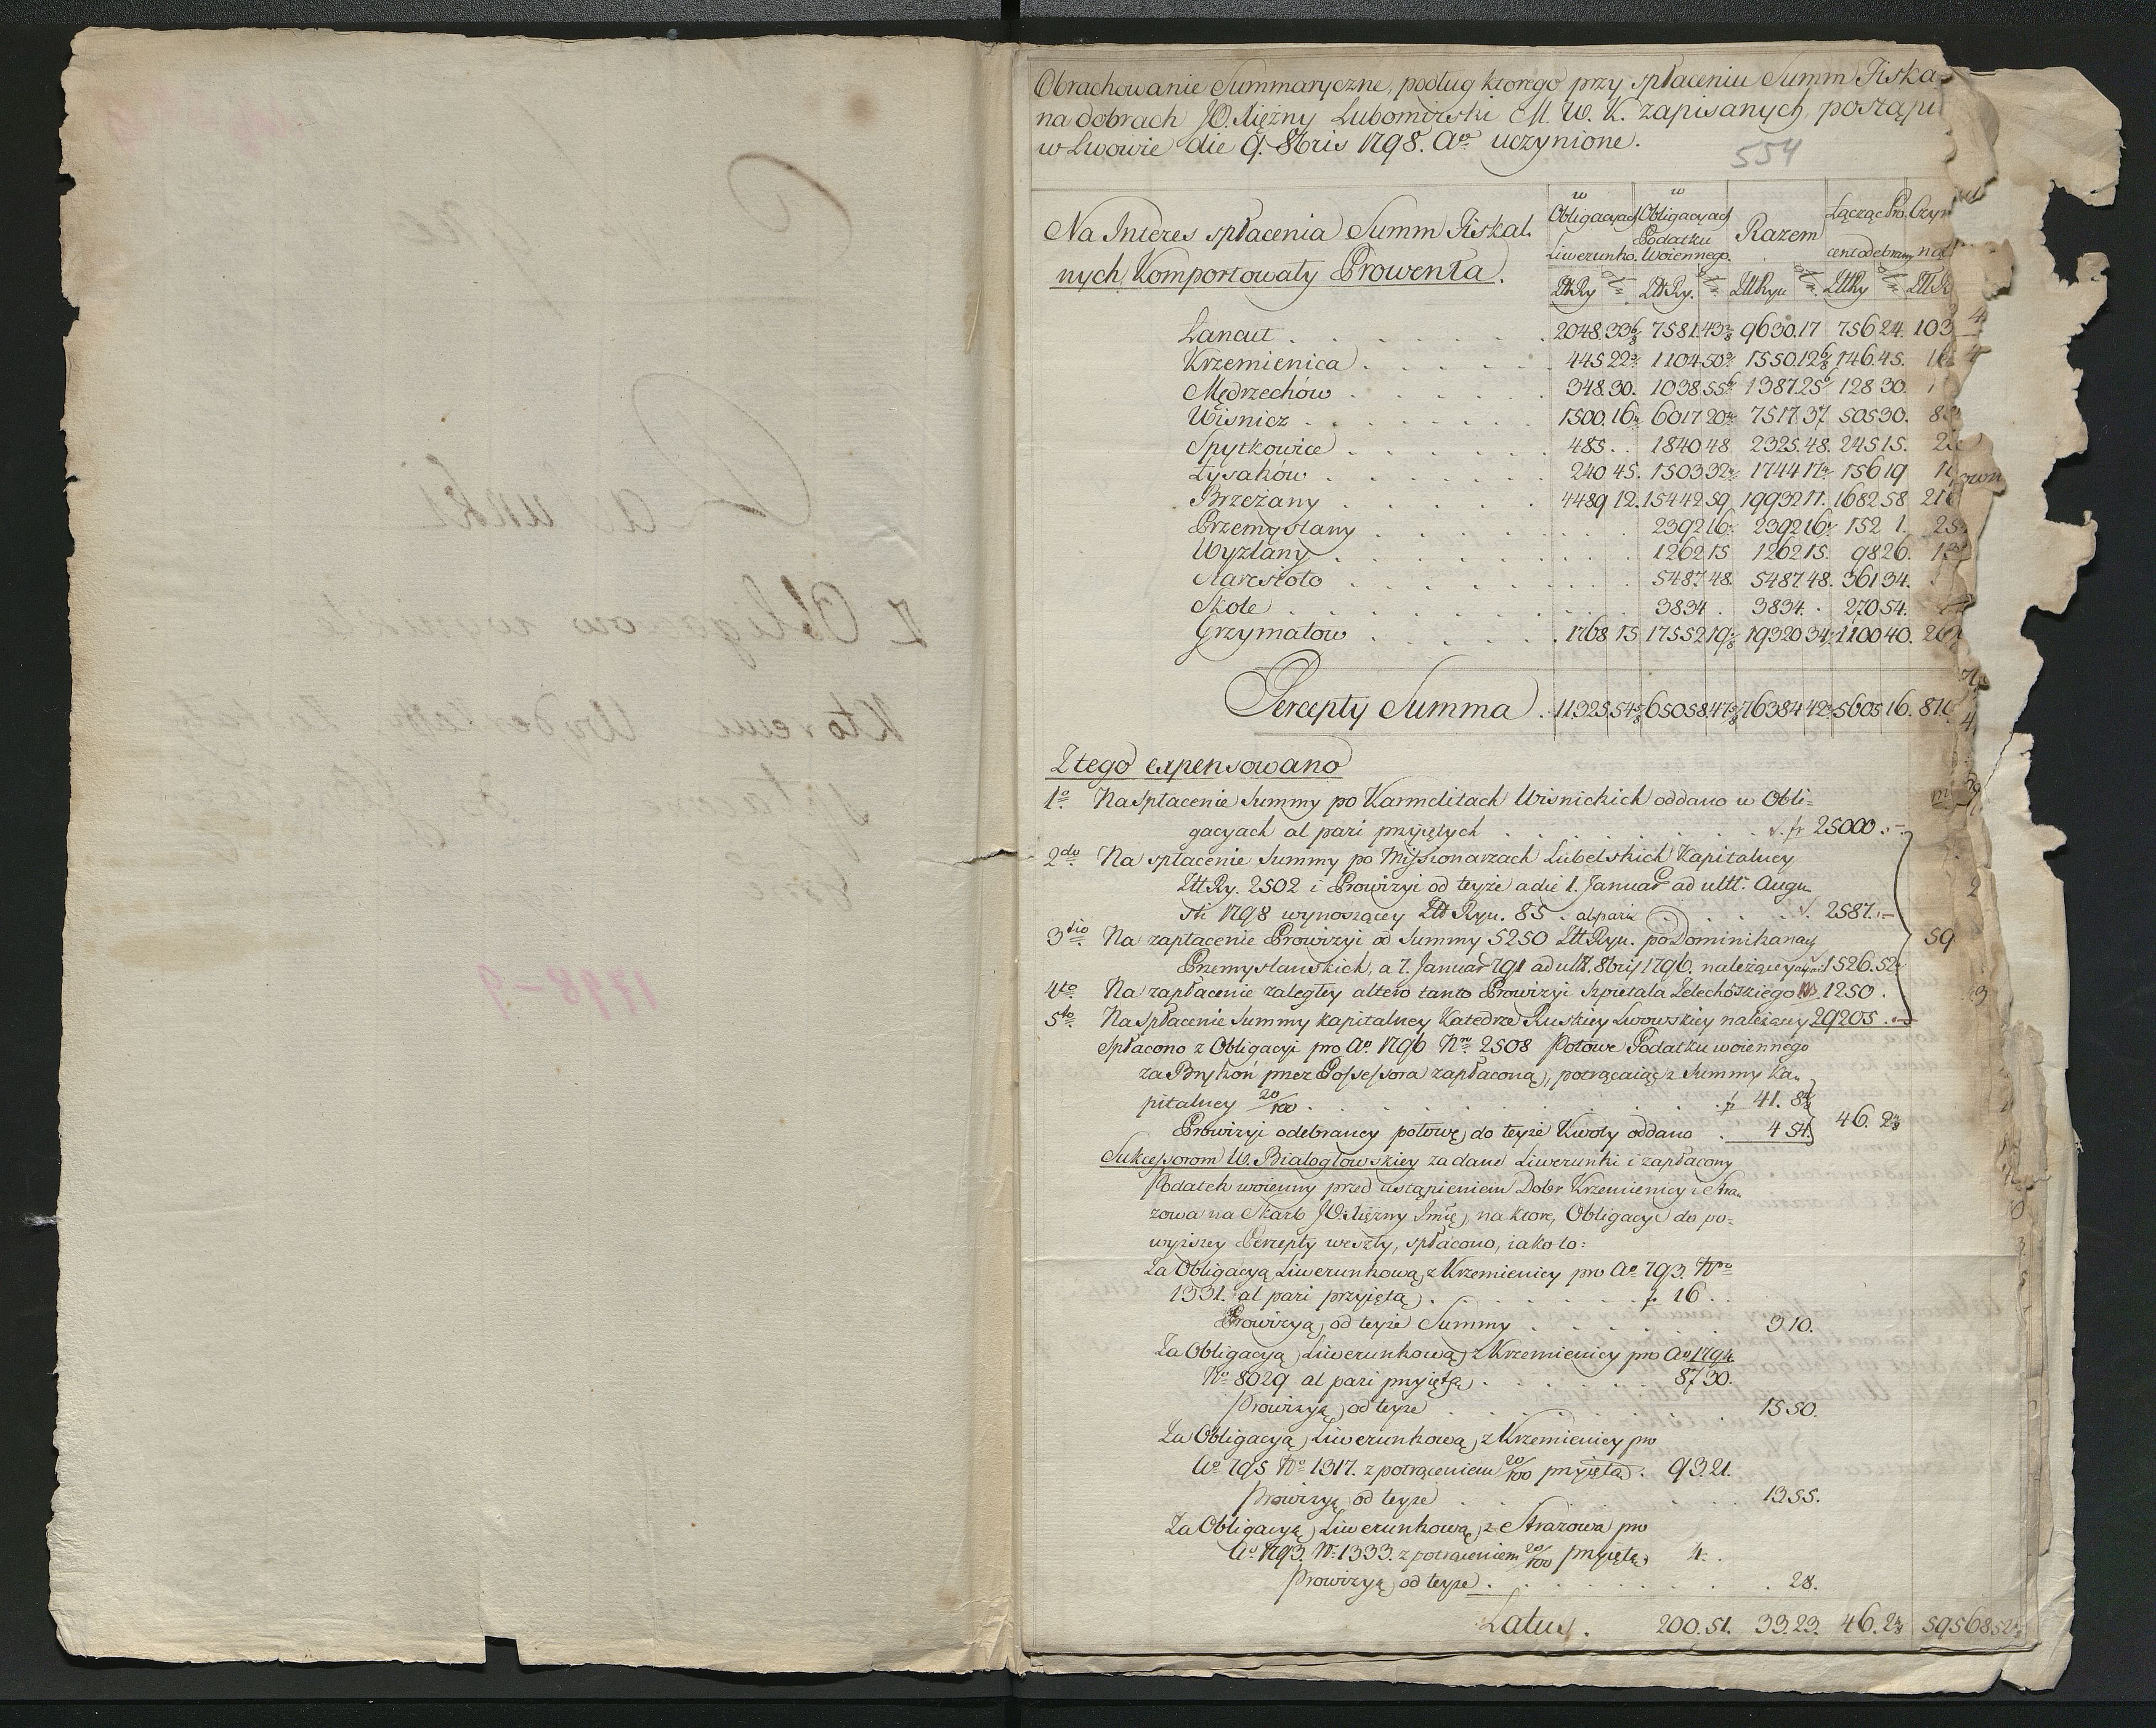 Obrachowanie Summaryczne, podług ktorego przy spłaceniu Summ Fiska
na dobrach JO. Xiężny Lubomirski M. W. K. zapisanych, postąpi
w Lwowie die 9. 8bris 1798. Ao uczynione.
554
Na Interes spłacenia Summ Fiskal
nych, Komportowały Prowenta.
w Obligacyach Liwerunko. w Obligacyach Podatku Woiennego. Razem Łącząc Pro centodebrany
ZłtRy ZłtRy. ZłtRyu ZłtRy
Łancut . 2048.33 6/8 7581.43 2/8 9630.17 756 24. 103
Krzemienica . 445 22 1104 50 1550.12 6/8 146.45.
Mędrzechów . 348.30. 1038 55 1387.25 128 30.
Wisnicz . 1500.16 6017 20 7517 37 505 30.
Spytkowice . 485 . . 1840 48 2325.48. 245 15.
Łysaków . 240 45. 1503 32 1744 17 156 19
Brzeżany . 4489 12. 15442 59 19932 11. 1682 58
Przemyslany . 2392 16 2392 16 152 1.
Wyzlany . 1262 15 1262 15. 98 26.
Staresioło . 5487 48. 5487 48. 361 34.
Skole . 3834 . 3834 . 270 54.
Grzymałow . 1768 15 17552 19 19320 34 1100 40.
Percepty Summa . 11325.54 65058.47 76384 42 5605 16. 870
Ztego expensowano
1o Na Spłacenie Summy po Karmelitach Wisnickich oddano w Obli=
gacyach al pari przyiętych . 25000.-
2do Na spłacenie Summy po Missionarzach Lubelskich Kapitalney
Złt Ry. 2502 i Prowizyi od teyże a die 1. Januar ad ult. Augu
sti 1798 wynoszącey Złt Ryu. 85 . al pari . 2587.-
3tio Na zapłacenie Prowizyi od Summy 5250 Złt Ryu. po Dominikanach
Przemyslawskich, a 7. Januar 791 ad ult. 8bris 1796. należącey 1526.52
59
4to Na zapłacenie zaległey altero tanto Prowizyi Szpitala Zelechowskiego 1250.
5to Na Spłacenie Summy kapitalney Katedrze Ruskiey Lwowskiey należącey 29205.
Spłacono z Obligacyi pro Ao 1796 Nro 2508 Połowe Podatku woiennego
za Brykoń przez Possessora zapłaconą, potrącaiąc z Summy Ka
pitalney 20/100 . 41. 8
Prowizyi odebraney połowę do teyże Kwoty oddano . 4 54. 46. 2
Sukcessorom W. Białogłowskiey za dane Liwerunki i zapłacony
Podatek woienny przed ustąpieniem Dobr Krzemienicy i Stra
zowa na Skarb JO. Xiężny Imię, na ktore, Obligacye do po=
wyższey Percepty weszły, spłacono, iako to:
Za Obligacyą Liwerunkową z Krzemienicy pro Ao 793. Nro
1331. al pari przyiętą . 16 .
Prowizyą od teyże Summy . 3 10.
Za Obligacyą Liwerunkową z Krzemienicy pro Ao 1794
No 8029 al pari przyiętą . 87 30.
Prowizyą od teyże . 15 50.
Za Obligacyą Liwerunkową z Krzemienicy pro
Ao 795 No 1317. z potrąceniem 20/100 przyiętą . 93.21.
Prowizyą od teyże . 13 55.
Za Obligacyą Liwerunkową z Strazowa pro
Ao 1793. No 1333. z potrąceniem 20/100 przyiętą 4 .
Prowizyą od teyże . 28.
Latus . 200.51. 33.23. 46.2 59568 52
1798-9